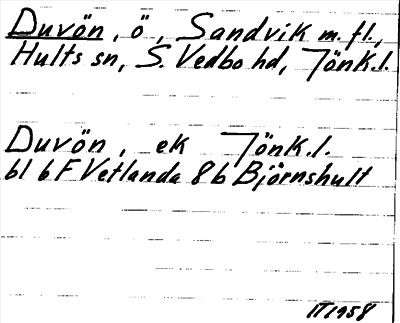 Duvön, ö, Sandvik m.fl.,
Hults sn, S. Vedbo hd, Jönk.l.
Duvön, ek Jönk.l.
bl 6 F Vetlanda 8 b Björnshult
IT 1958